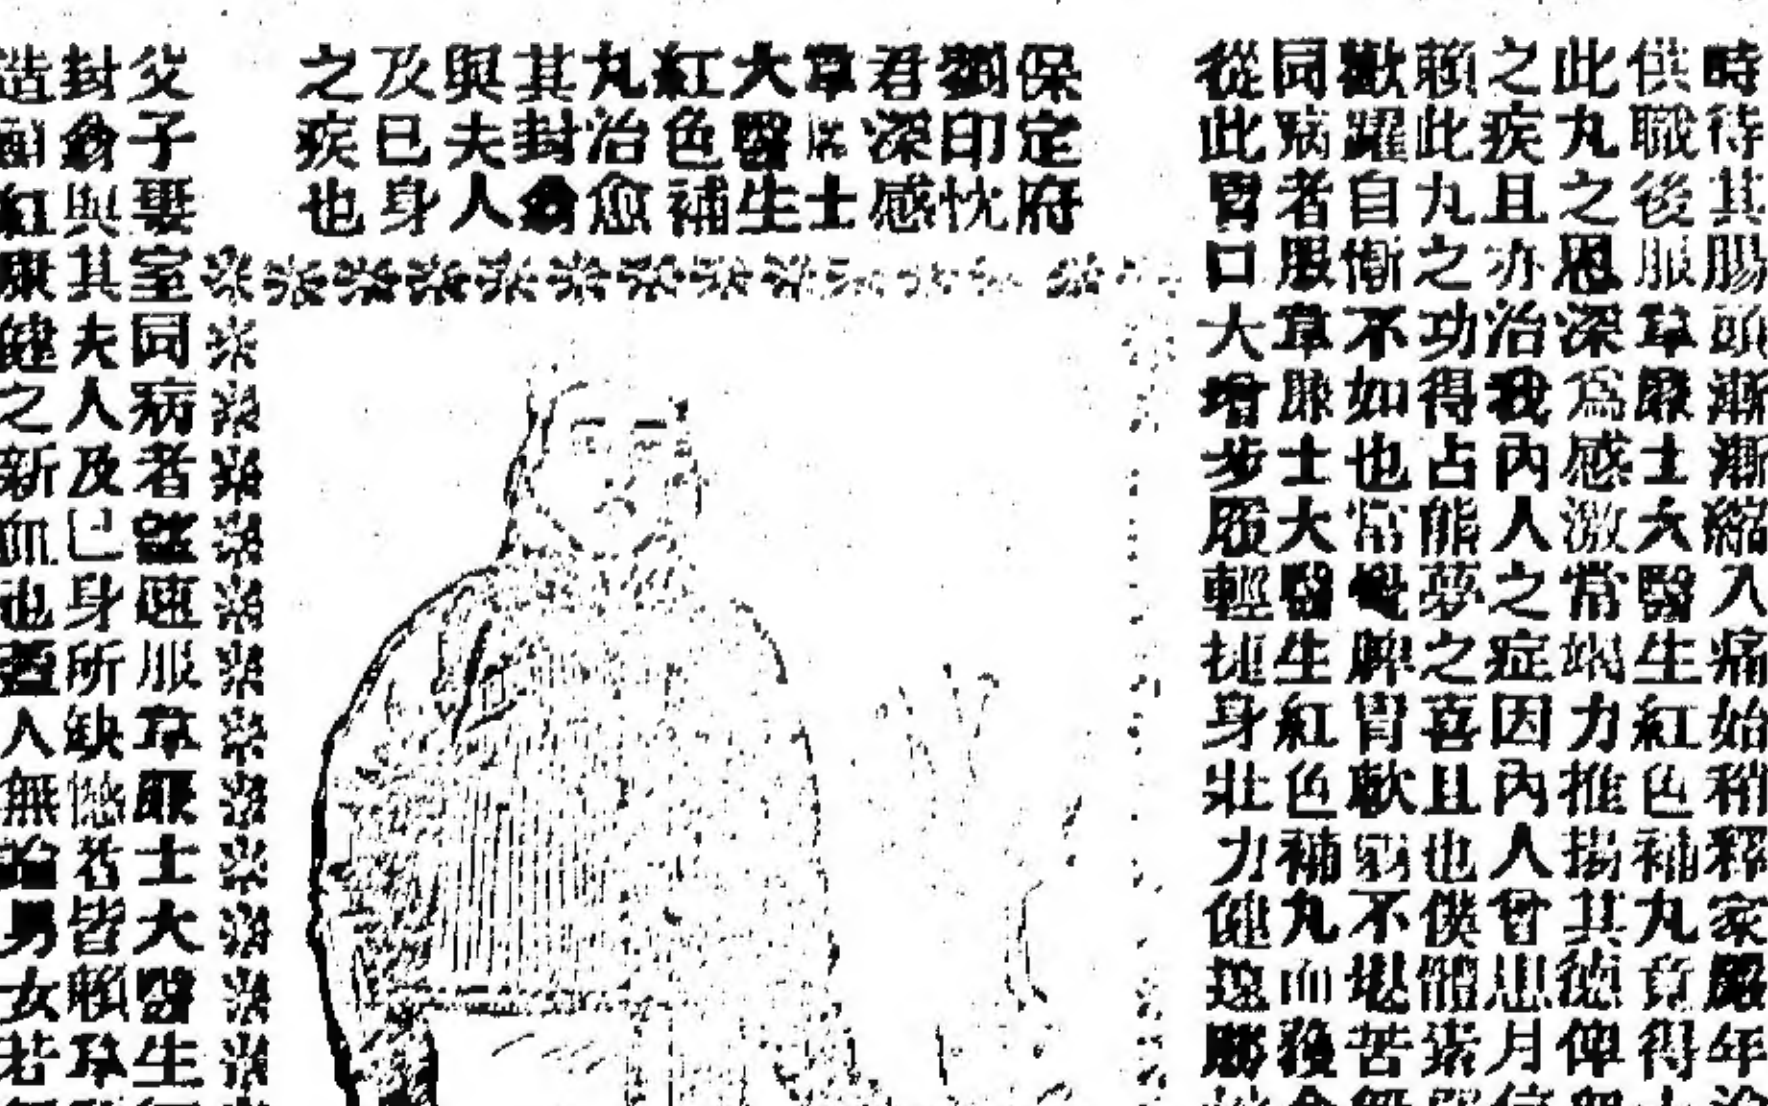 時待其腸頭漸漸縮入痛始稍釋家嚴年
供職後服韋廉士大醫生紅色補丸竟得
此丸之恩深爲感激常竭力推揚其德俾
之疾且亦治我內人之症因內人曾患月
賴此丸之功得占熊夢之喜且也僕體素
歡躍自慚不如也常覺脾胃軟弱不堪苦
同病者服韋廉士大醫生紅色補丸而後
從此胃口大增步履輕捷身壯力健遠勝
保定府
劉印忱
君深感
韋廉士
大醫生
紅色補
丸治愈
其封翁
與夫人
及己身
之疾也
父子妻室同病者望速服韋廉士大醫生
封翁與其夫人及己身所缺憾者皆賴韋
造鮮紅康健之新血也蓋人無論男女若